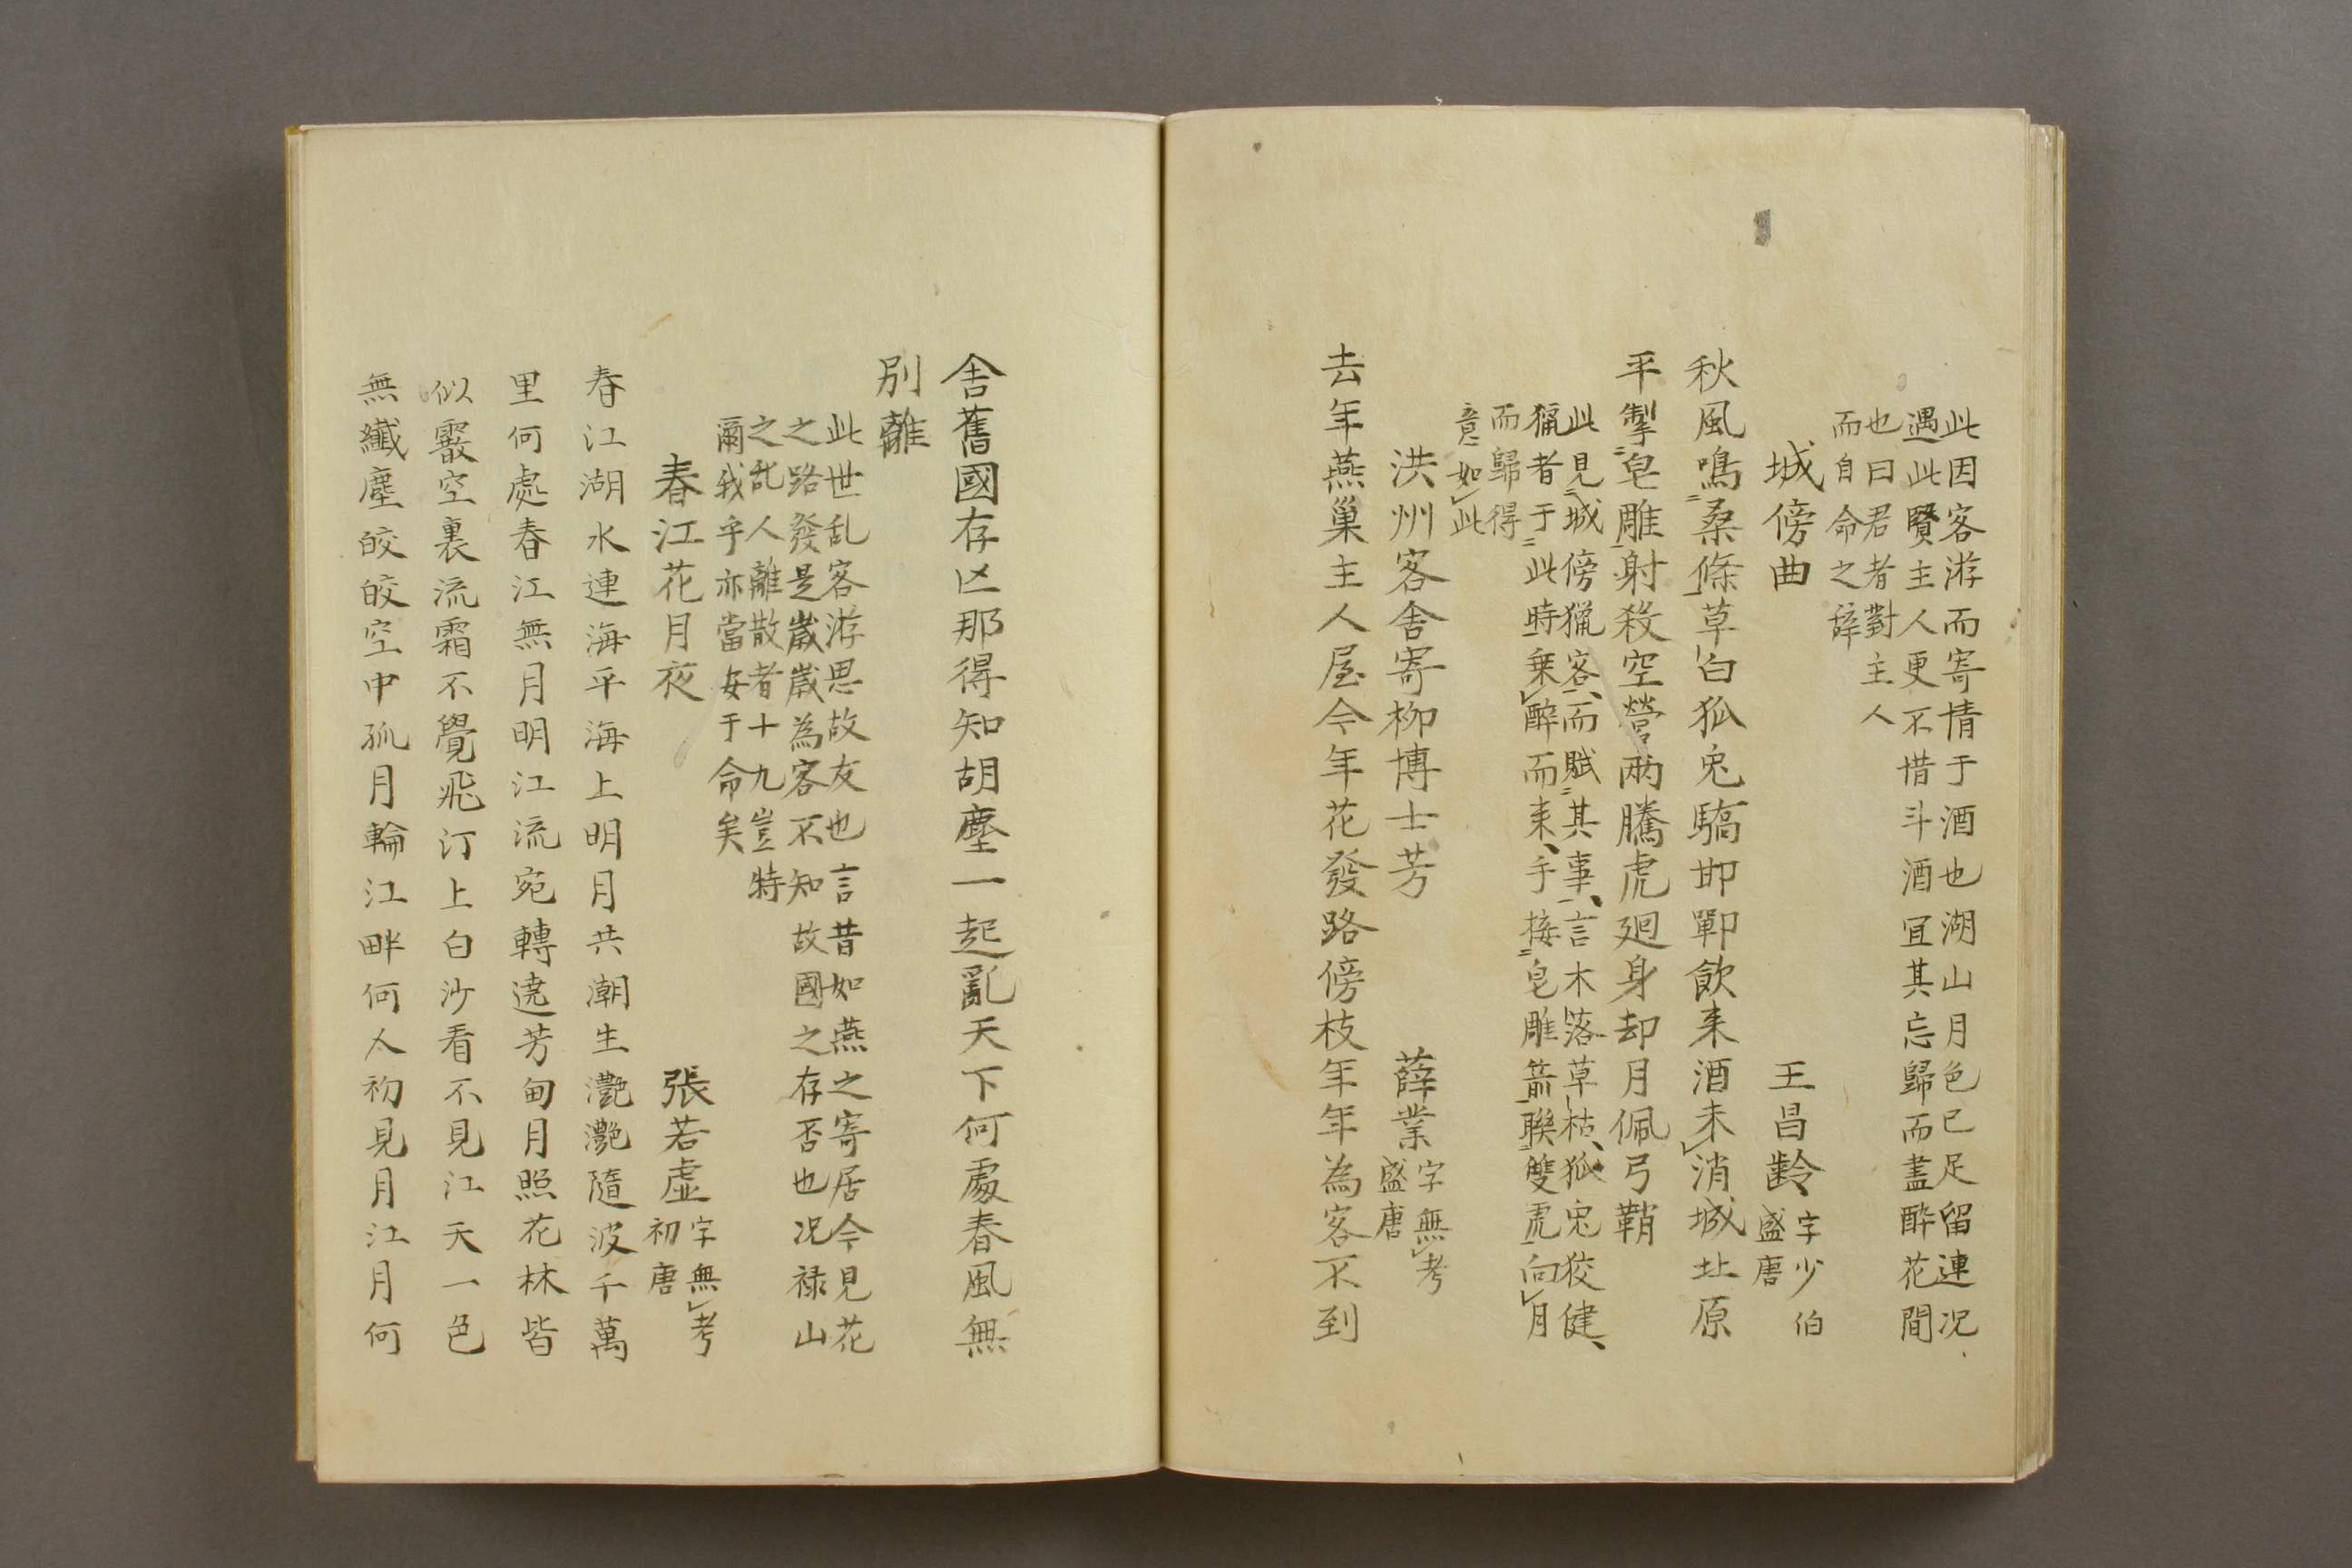 此因客游而寄情于酒也湖山月色已足留連况
遇此賢主人更不惜斗酒宜其忘歸而盡醉花間
也曰君者對主人
而自命之辞
城傍曲
王昌齡
字少伯
盛唐
秋風鳴桑條草白狐兎驕邯鄲飲来酒未消城北原
平掣皂雕射殺空營兩騰虎廻身却月佩弓鞘
此見城傍獵客而賦其事言木落草枯狐兎狡健
獵者于此時乗醉而来手接皂雕箭聮雙虎向月
而歸得
意如此
洪州客舎寄柳博士芳
薛業
字無考
盛唐
去年燕巢主人屋今年花發路傍枝年年為客不到
舎舊國存亾那得知胡塵一起亂天下何處春風無
別離
此世乱客游思故友也言昔如燕之寄居今見花
之路發是嵗嵗為客不知故國之存否也况禄山
之乱人離散者十九豈特
爾我乎亦當安于命矣
春江花月夜
張若虚
字無考
初唐
春江湖水連海平海上明月共潮生灔灔隨波千萬
里何處春江無月明江流宛轉遶芳甸月照花林皆
似霰空裏流霜不覺飛汀上白沙看不見江天一色
無纎塵皎皎空中孤月輪江畔何人初見月江月何